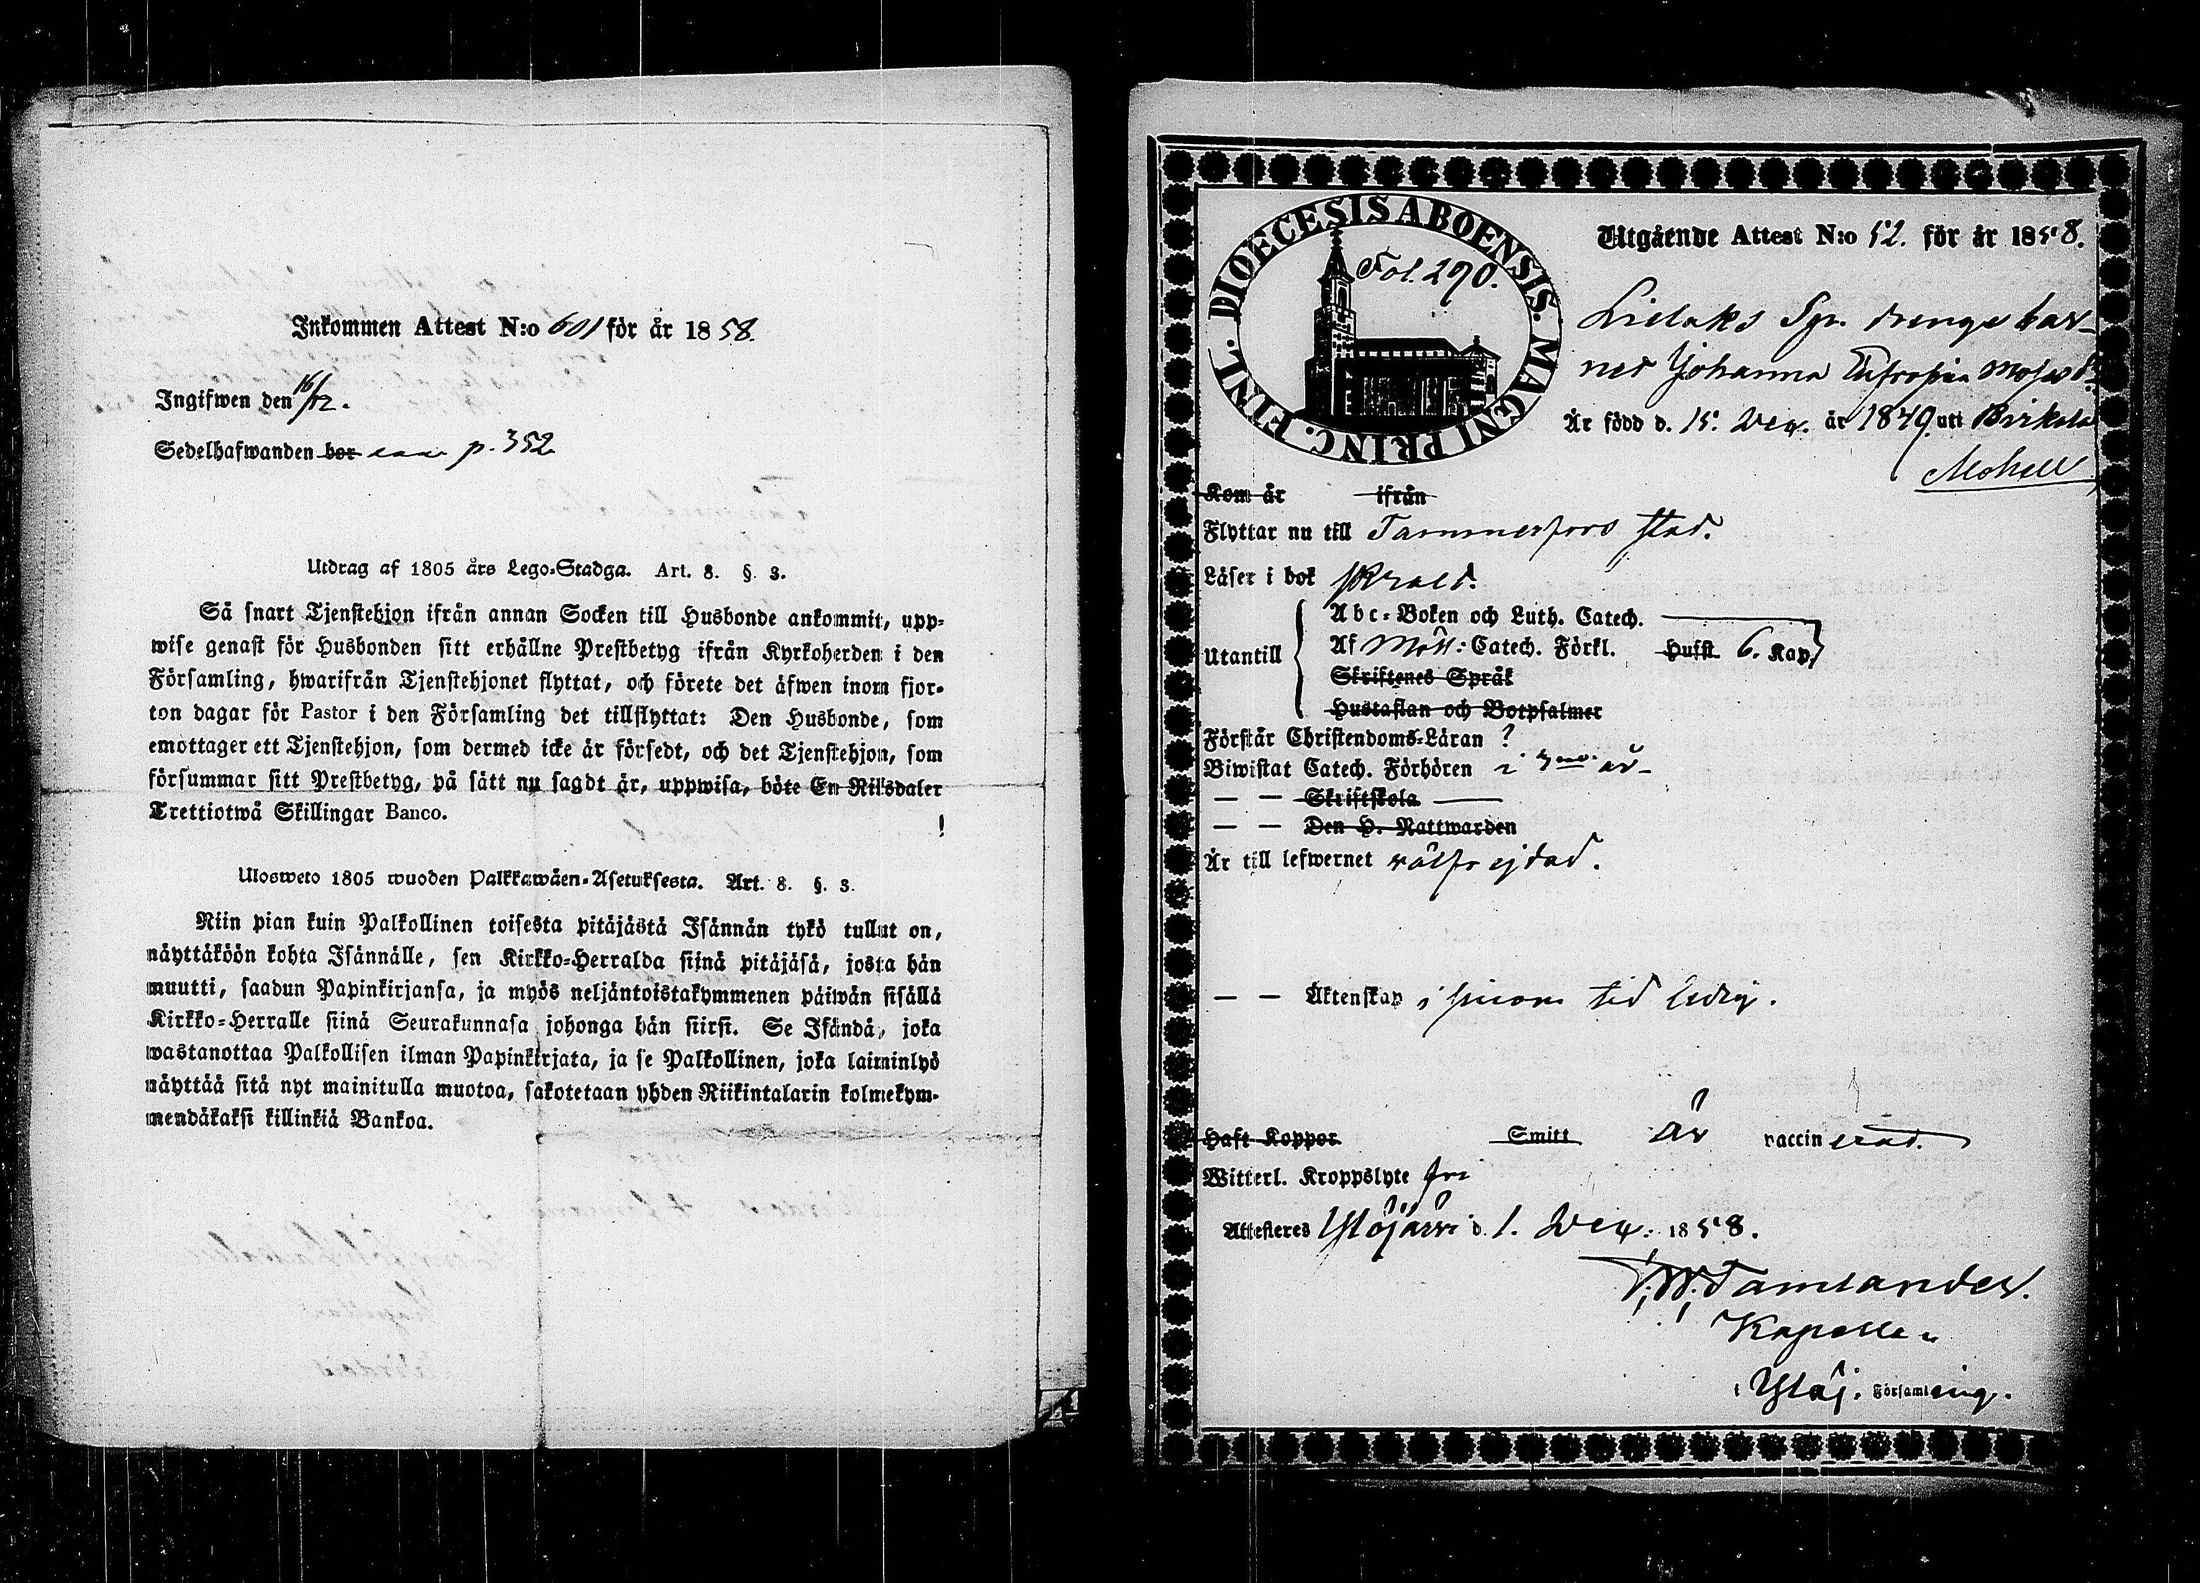 Inkommen Attest N:o 601 för år 1858.
Ingifwen den 16/12.
Sedelhafwanden bor p. 352.
Utdrag af 1805 års Lego-Stadga. Art. 8. §. 3.
Så snart Tjenstehjon ifrån annan Socken till Husbonde ankommit, upp-
wise genast för Husbonden sitt erhållne Prestbetyg ifrån Kyrkoherden i den
Församling, hwarifrån Tjenstehjonet flyttat, och förete det äfwen inom fjor-
ton dagar för Pastor i den Församling det tillflyttat: Den Husbonde, som
emottager ett Tjenstehjon, som dermed icke är försedt, och det Tjenstehjon, som
försummar sitt Prestbetyg, på sätt nu sagdt är, uppwisa, böte En Riksdaler
Trettiotwå Skillingar Banco.
Ulosweto 1805 wuoden Palkkawäen-Asetuksesta. Art. 8. §. 3.
Niin pian kuin Palkollinen toisesta pitäjästä Isännän tykö tullut on,
näyttäköön kohta Isännälle, sen Kirkko-Herralda siinä pitäjäsä, josta hän
muutti, saadun Papinkirjansa, ja myös neljäntoistakymmenen päiwän sisällä
Kirkko-Herralle siinä Seurakunnasa johonga hän siirsi. Se Isändä, joka
wastanottaa Palkollisen ilman Papinkirjata, ja se Palkollinen, joka laiminlyö
näyttää sitä nyt mainitulla muotoa, sakotetaan yhden Riikintalarin kolmekym-
mendäkaksi killinkiä Bankoa.
DIOECESIS ABOENSIS. MAGNI PRINC. FINL.
Fol. 290.
Utgående Attest N:o 52. för år 1858.
Lielaks Sgn. drenge bar-
net Johanna Eufrosina Mosesd:r
Är född d. 15. Dec. år 1849. uti Birkala
Moder
Kom år ifrån
Flyttar nu till Tammerfors stad.
Läser i bok
Utantill
Abc-Boken och Luth. Catech.
Af Möll: Catech. Förkl. Husst. 6. Kap.
Skriftenes Språk
Hustaflan och Botpsalmer
Förstår Christendoms-Läran ?
Biwistat Catech. Förhören i år
— — Skriftskola
— — Den H. Nattwarden
Är till lefwernet wälfrejdad.
— — Äktenskap i sinom tid ledig.
Haft Koppor Smitt är vaccinerad.
Witterl. Kroppslyte fri
Attesteres Ylöjärvi d. 1. Dec: 1858.
Tamlander.
Kapellan
i Ylöj. Församling.